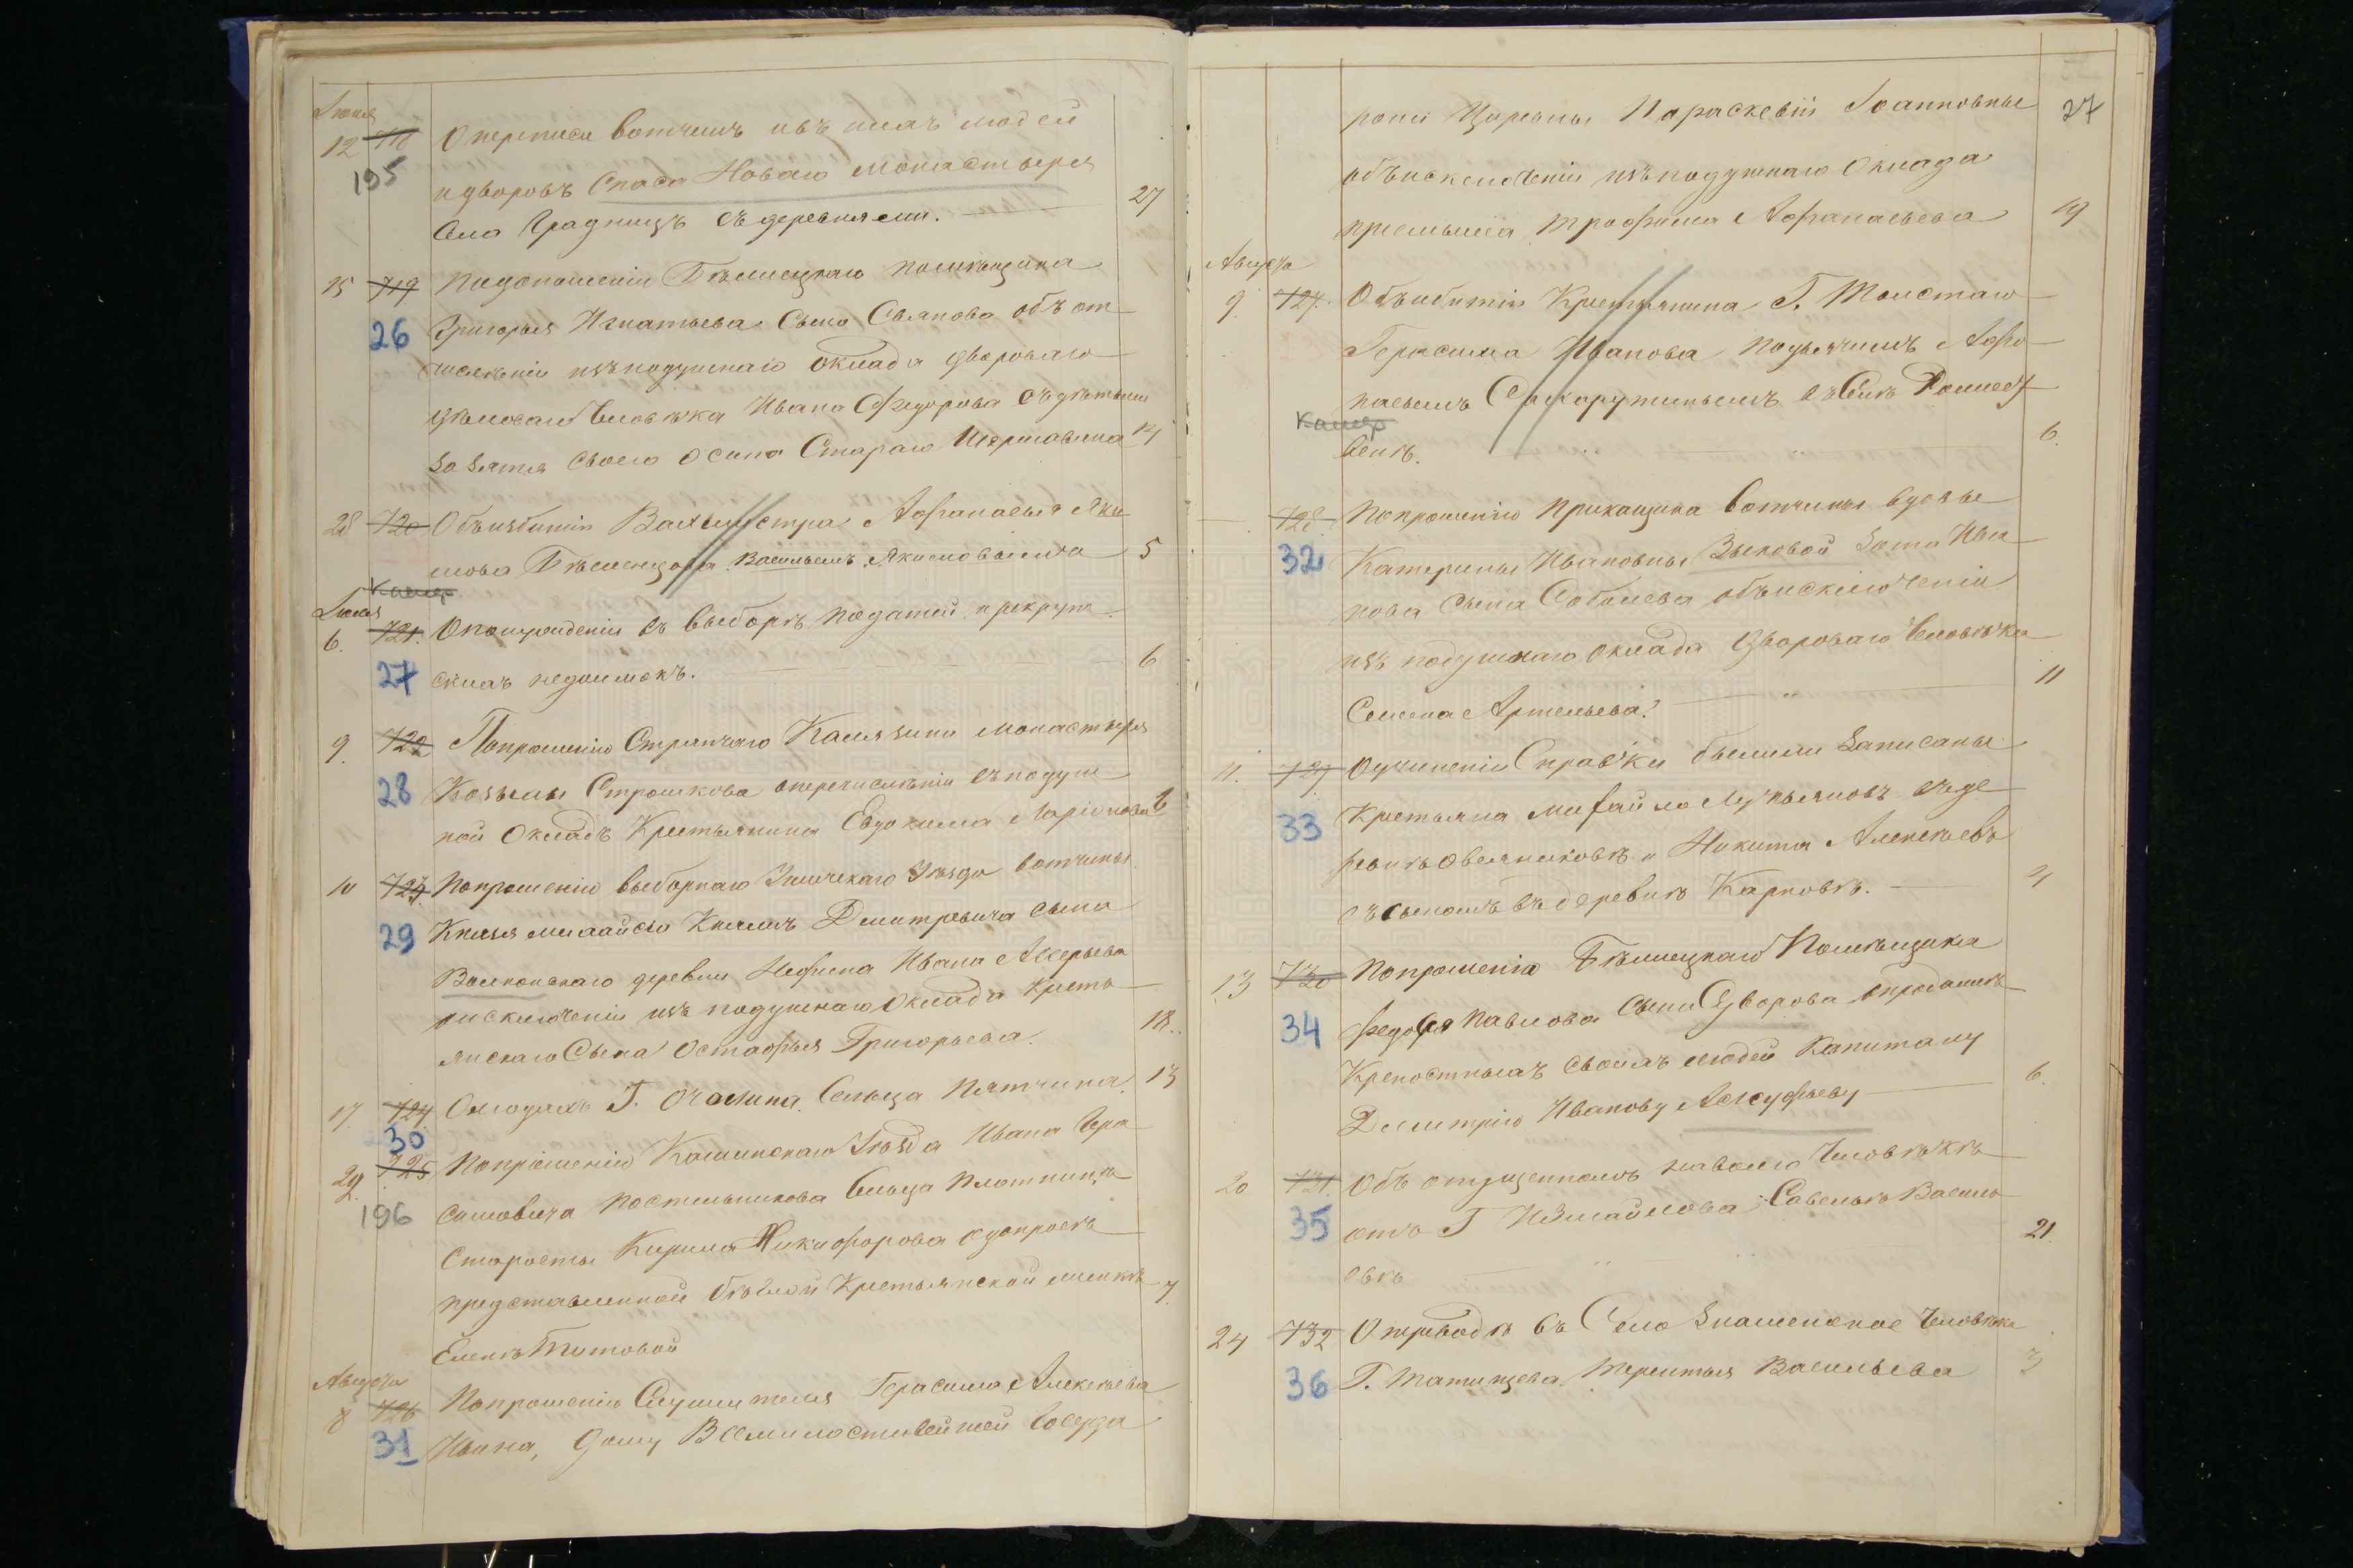 Іюня
12 718 О переписи вотчинъ и въ нихъ людей
195 и дворовъ Спаса Новаго монастыря
Села Градницъ съ деревнями. 27
15 719 По доношенію Бѣжецкаго помѣщика
26 Григорья Игнатьева Сына Свѣянова объ от
численіи изъ подушнаго оклада двороваго
человѣка Ивана Ѳедорова съ дѣтьми
За зятя своего Осипа Стараго 14
28 720 Объ избитіи Вахмистра Афанасья Яки
мова Бѣженцова Васильемъ Якимовымъ 5
Камер
Іюля
6. 721. О понужденіи въ выборѣ податей и рекрут
27 скихъ недоимокъ. 6
9. 722 По прошенію Стряпчаго Калязина монастыря
28 Козьмы Строшкова о перечисленіи въ подуш
ной окладъ Крестьянина Евдокима Ларіонова 6
10 723. По прошенію выборнаго Углическаго Уѣзда вотчины
29 Князя Михайла Князь Дмитревича Сына
Волконскаго деревни Нефина Ивана
о исключеніи изъ подушнаго оклада кресть
янскаго Сына Остафья Григорьева. 18.
17. 724. О людяхъ Г. Очалина Сельца Пятчина. 13
30
29. 725 По прошенію Кашинскаго Уѣзда Ивана Гера
196 симовича Постельникова Сельца Плотницъ
Старосты Кирила Никифорова о допросѣ
представленной бѣглой крестьянской женкѣ 7
Еленѣ Титовой
Августа
8 726 По прошенію Служителя Герасима Алексѣева
31 Ильина, дому Всемилостивейшей Госуда
27
рони Царевны Параскевіи Іоанновны
объ исключеніи изъ подушнаго оклада
приемыша Трофима Афанасьева 19
Августа
9. 727. Объ избитіи Крестьянина Г. Толстаго
Герасима Иванова подъячимъ Афо
насьемъ въ Селѣ
Камер
венѣ. 6.
728 По прошенію прикащика вотчины вдовы
32 Катерины Ивановны Зыковой Зота Ива
нова сына Соболева объ исключеніи
изъ подушнаго оклада двороваго человѣка
Семена Артемьева. 11
11. 729 О учиненіи Справки былили записаны
33 Крестьяна Михайло Лукьяновъ въ де
ревнѣ Овсяниковѣ и Никита Алексѣевъ
съ сыномъ въ деревнѣ Карповѣ. 4
13 730 По прошенію Бѣжецкаго Помѣщика
34 Федора Павлова Сына Суворова о продажѣ
Крепостныхъ своихъ людей Капитану
Дмитрію Иванову 6.
20 731. Объ отпущенномъ на волю Человѣкѣ
35 отъ Г Измайлова, Савельѣ Василь
евѣ 21.
24 732 О переводѣ въ Село Знаменское Человѣка
36 Г. Татищева, Терентья Васильева 3